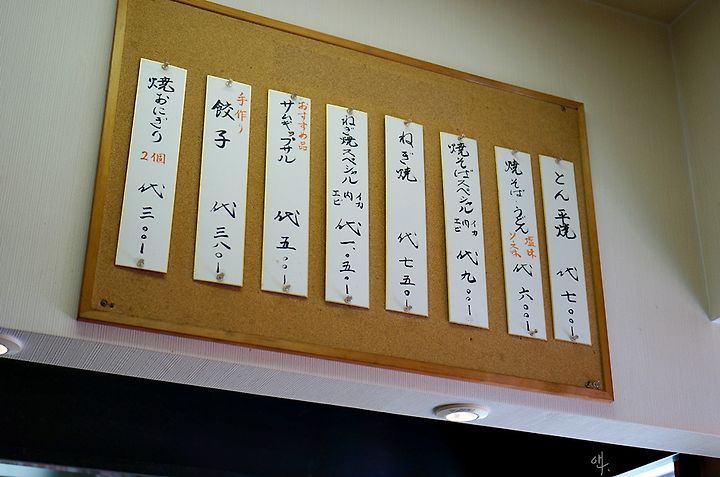 とん平焼 代 七〇〇ー
焼そば・うどん 塩味 ソース味 代 六〇〇ー
焼そばスペシャル イカ 肉 エビ 代 九〇〇ー
ねぎ焼 代 七五〇ー
ねぎ焼スペシャル イカ 肉 エビ 代 一、〇五〇ー
おすすめ品
サムギョプサル 代 五〇〇ー
手作り
餃子 代 三八〇ー
焼おにぎり 2個 代 三〇〇ー